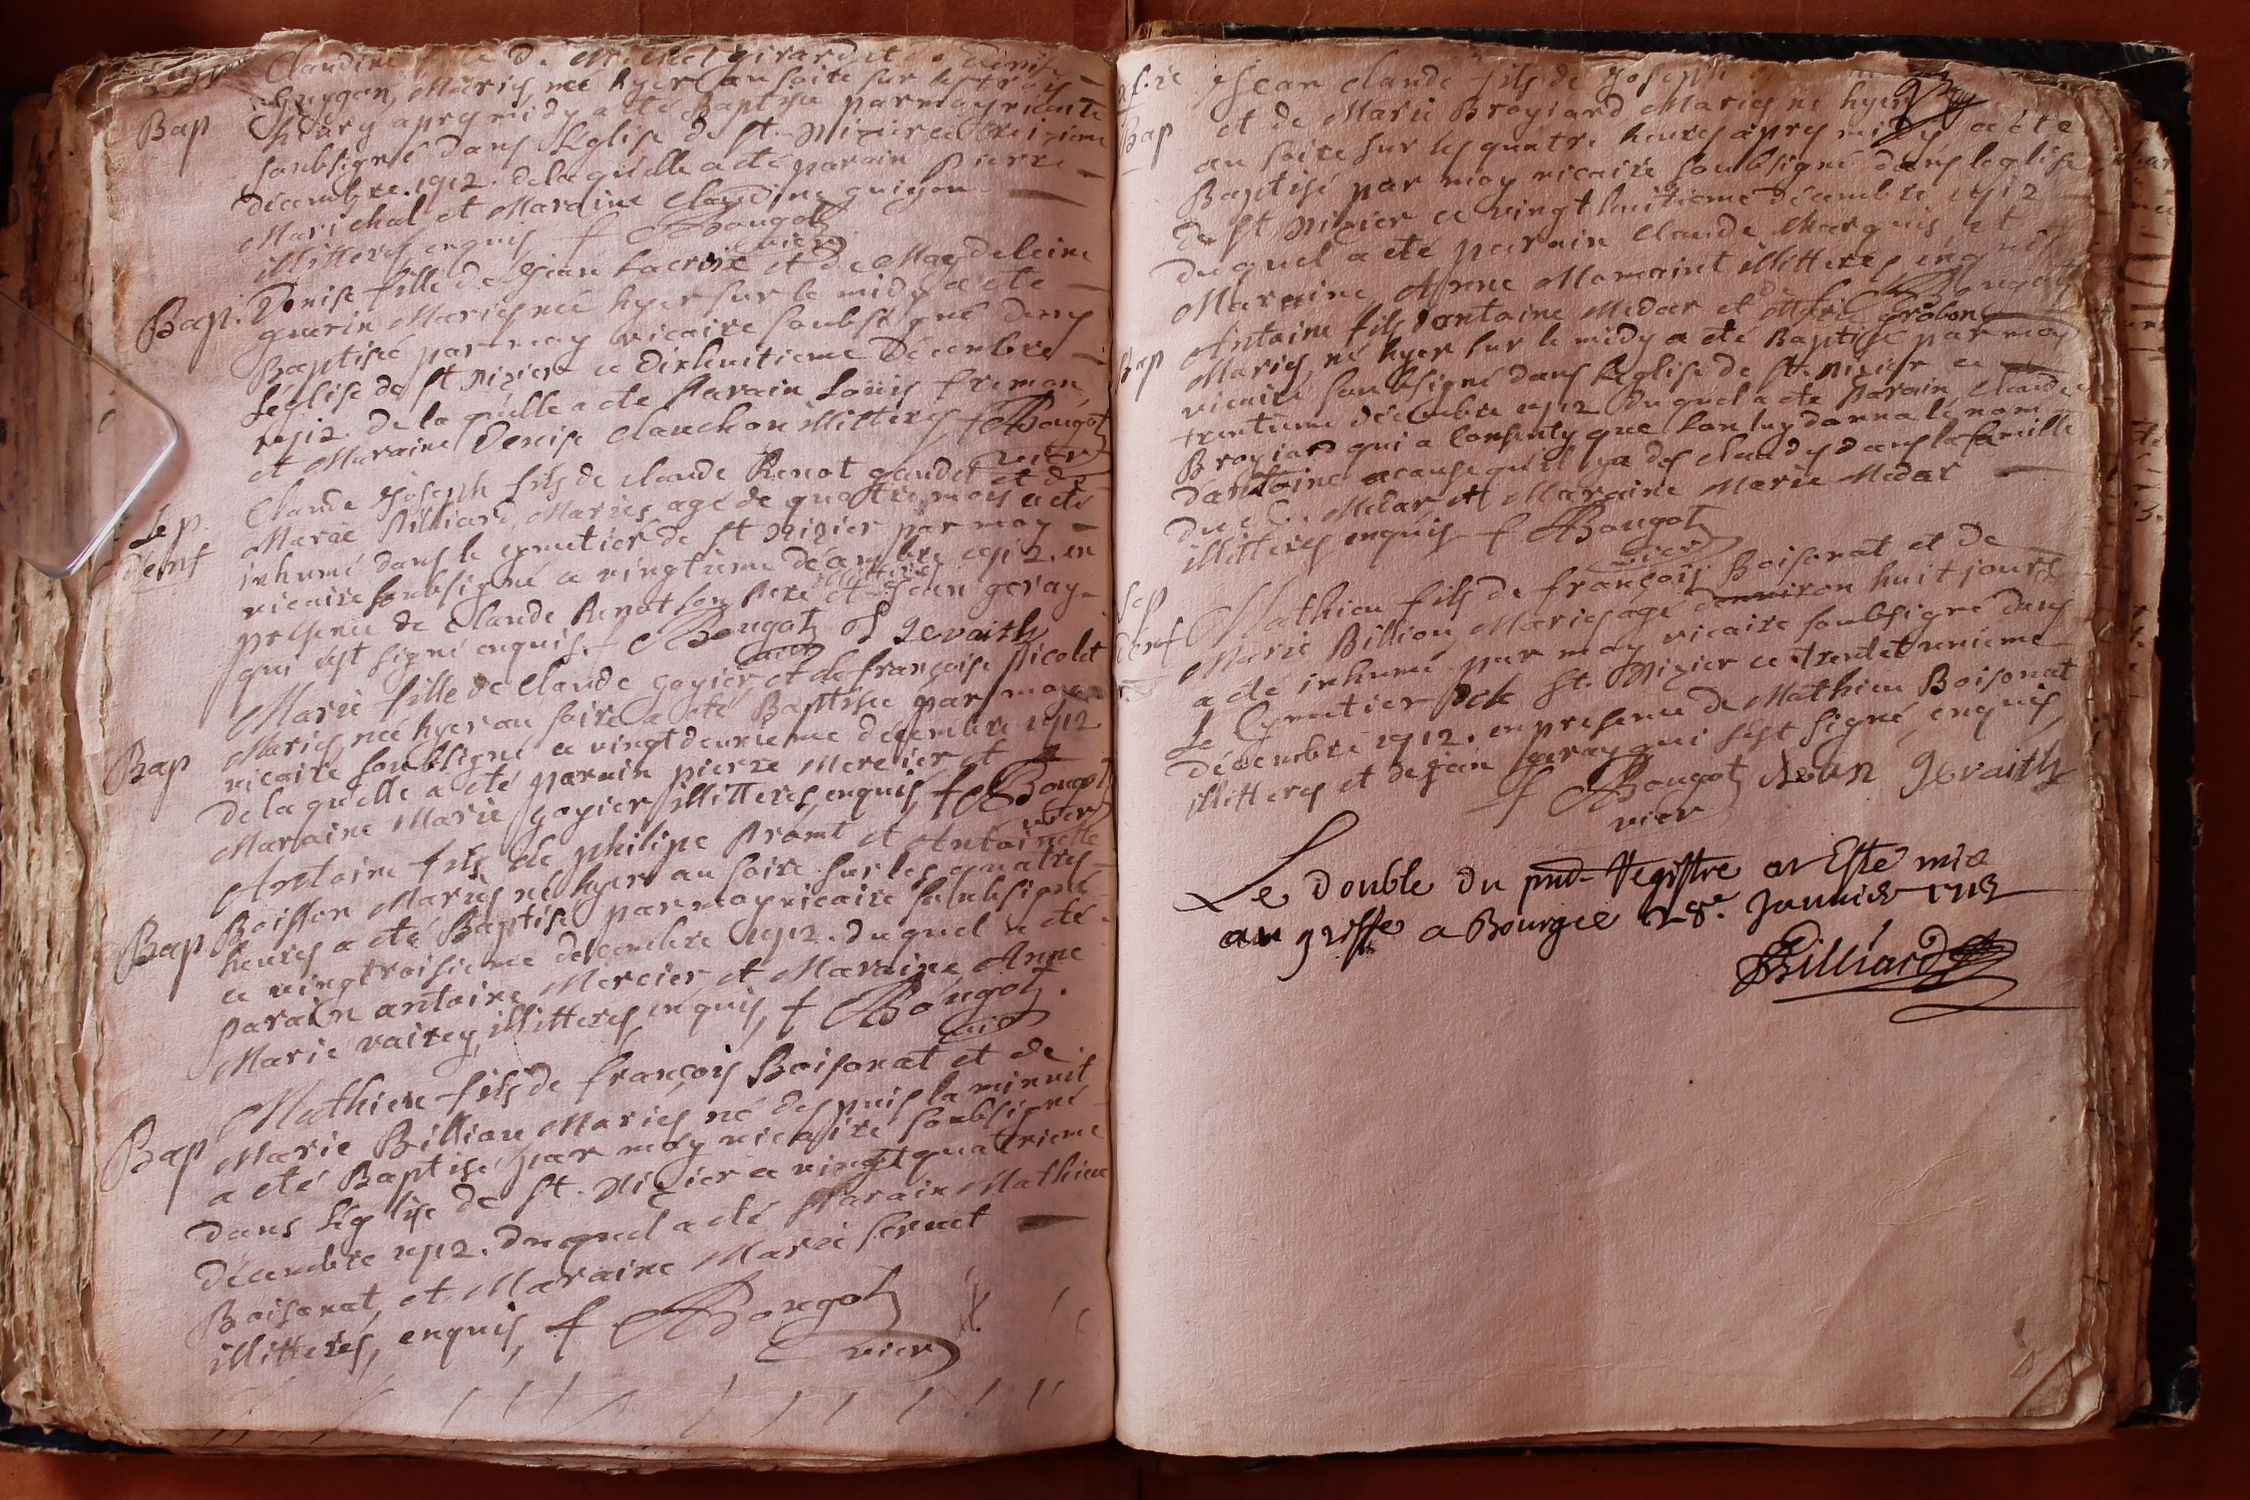 Claudine fille de Michel girard et
Guygon, Mariés, née hyer au soire sur les trois
Bap
heures apres midy a été Baptisée par moy vicaire
soubsigné dans l'Eglise de st. Nizier ce treizieme
décembre. 1712. de laquelle a eté parain Pierre
Marichal et Maraine Claudine guichon
illitterés enquis f Bougot
vicr
Bap. Denise fille de Jean Lacroix et de Magdeleine
guerin Mariés née hyer sur le midy a eté
Baptisée par moy vicaire soubsigné dans
l'église de st Nizier ce dixhuitieme Décembre
1712. de laquelle a eté Parain Loüis freman,
et Maraine Denise Clauchon illitterés f Bougot
vicr
Sep.
d'enf
Claude Joseph fils de claude Renot gaudet et de
Marie Billiard, Mariés, agé de quatre mois a eté
inhumé dans le cymetier de st Nizier par moy
vicaire soubsigné ce vingtieme décembre 1712. en
presence de Claude Renot son Pere illitteré et Jean geray
qui s'est signé enquis. f Bougot J gevaith
vicr
Bap
Marie fille de Claude goyier et de françoise Nicolet
Mariés, née hyer au soire a eté Baptisée par moy
vicaire soubsigné ce vingtdeuxieme décembre 1712
de laquelle a eté parain pierre Mercier et
Maraine Marie goyier illitterés, enquis, f Bougot
vicr
Bap
Antoine fils de philipe Prömt et Antoinette
Boisson Mariés né hyer au soire sur les quatres
heures a eté Baptisé par moy vicaire soubsigné
ce vingttroisieme décembre 1712. duquel a eté
parain antoine Mercier, et Maraine Anne
Marie vairey, illitterés, enquis, f Bougot.
vicr
Bap
Mathieu fils de françois Boisonat et de
Marie Billion Mariés né des puis la minuit
a eté Baptisé par moy vicaire soubsigné
dans l'église de st. Nizier ce vingtquatrieme
décembre 1712. duquel a eté Parain Mathieu
Boisonat, et Maraine Marie servet
illitterés, enquis, f Bougot
vicr
Jean claude fils de Joseph
Bap
et de Marie Broyiard Mariés né hyer
au soire sur les quatre heures apres midy a eté
Baptisé par moy vicaire soubsigné dans leglise
de st Nizier ce vingt huitieme décembre 1712
duquel a eté parain Claude Marquis, et
Maraine Anne Mamaint illitterés, enquis f Bougot
Bap
Antoine fils d'antoine Medar et de Marie grobon
Mariés, né hyer sur le midy a eté Baptisé par moy
vicaire soubsigné dans l'eglise de st. Nizier ce
trentieme décembre 1712 duquel a eté Parain, claude
Broyiard qui a consenty que lon luy donna le nom
d'antoine acause qu'il y a des claudes dans la famille
du Medar, et Maraine Marie Medar
illitterés enquis f Bougot
vicr
Sep
d'enf
Mathieu fils de françois Boisonat, et de
Marie Billion, Mariés agé denviron huit jours
a eté inhumé par moy vicaire soubsigné dans
le Cymetier de st. Nizier ce trentetunieme
décembre 1712. en presence de Mathieu Boisonat
illitterés et de jean geray qui s'est signé, enquis,
f Bougot Jean gevaith
vicr
Le double du pnd Registre at Esté mis
au greffe a Bourg ce 28e. Januier 1713
Billiard